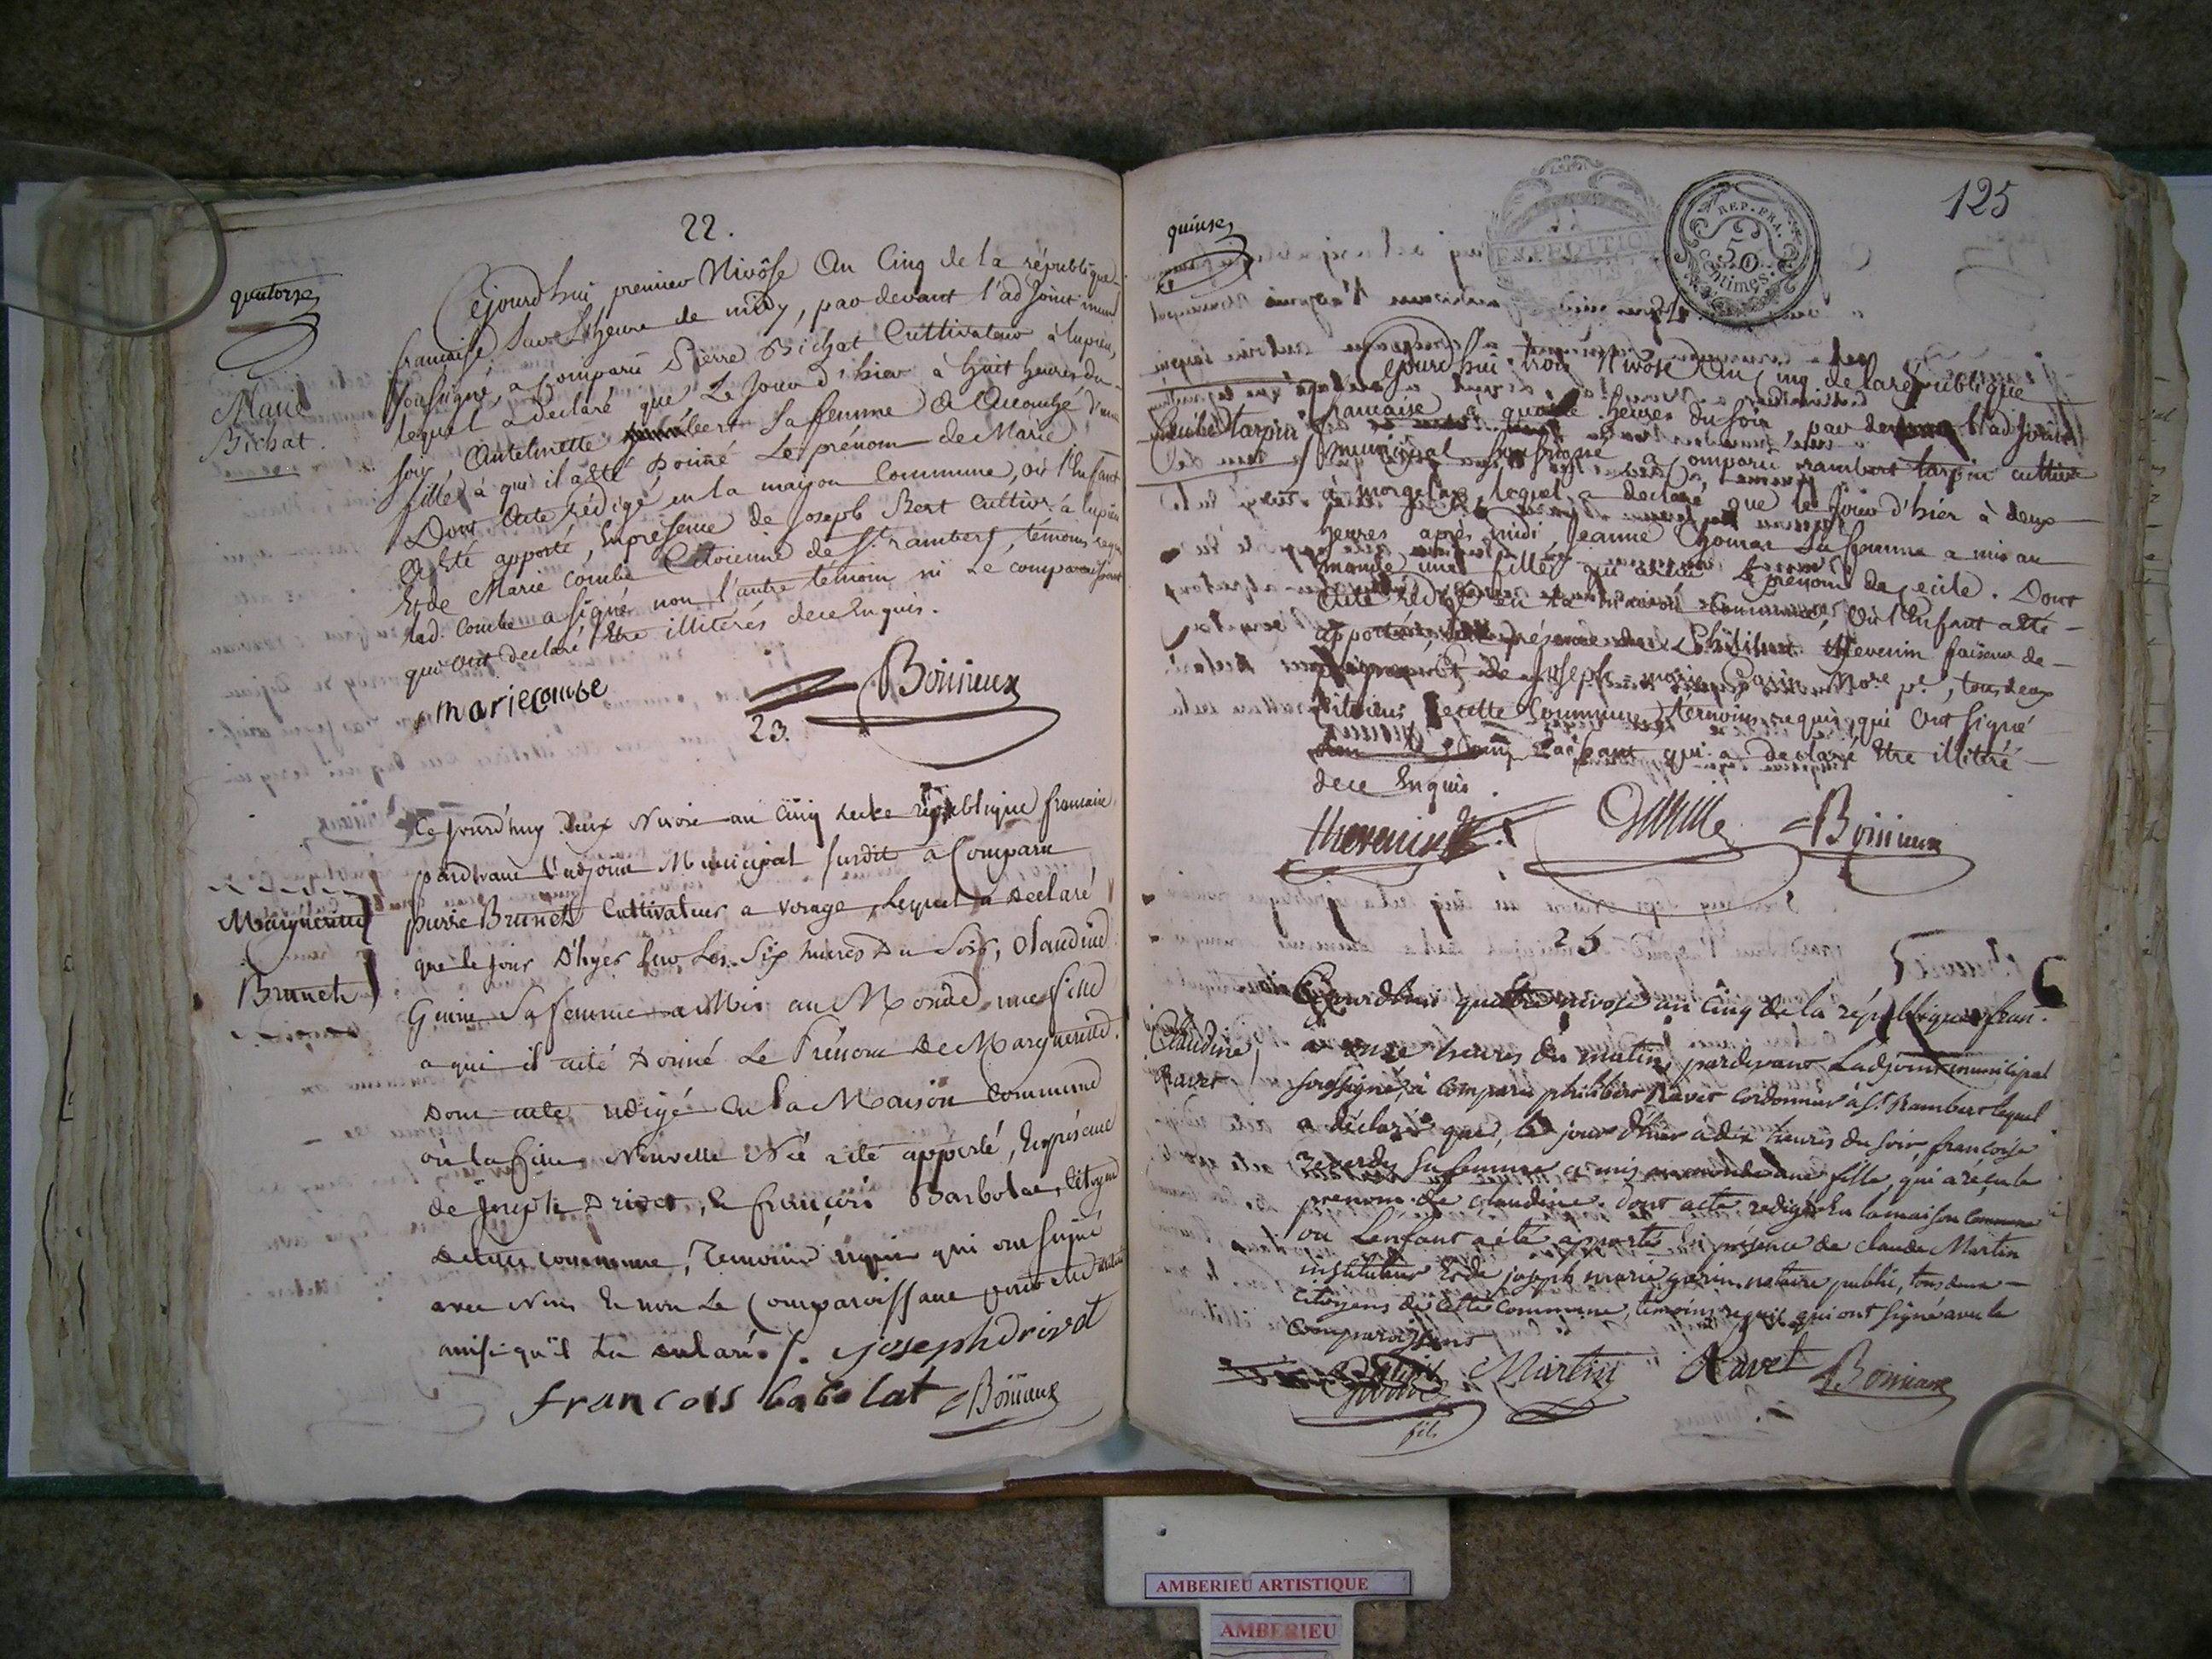 22.
quatorze
Cejourd'hui premier Nivôse An Cinq de la république
française, Sur L'heure de midy, par devant l'adjoint muni
soussigné, a Comparu Pierre Bichat Cultivateur à lupieu,
Marie
Bichat.
lequel a Declaré que Le Jour d'hier à huit heures du
soir, Antelmette bert Sa femme a Accouché d'une
fille à qui il a été Donné Le prénom de Marie
Dont Acte rédigé en la maison Commune, où l'Enfant
a Eté apporté, En présence de Joseph Bert Cultivr à lupieu
Et de Marie Combe Citoienne de St rambert, témoins requis
lad. Combe a signé non l'autre témoin ni Le comparoissant
qui Ont declaré Etre illiterés de ce Enquis.
marie combe
Boinieux
23.
Ce jourd'huy Deux Nivose an Cinq de la République francaise
pardevant l'adjoint Municipal susdit a Comparu
Marguerite
Brunet
pierre Brunet Cultivateur a vorage, Lequel a Déclaré
que le jour D'hyer sur Les Six heures Du Soir, Claudine
Guine Sa femme a Mis au Monde une fille
a qui il a été Donné Le Prénom De Marguerite
Dont acte rédigé en la Maison Commune
où la fille Nouvelle Née a été apporté, En présence
de Joseph Drivet, & françois Barbolat, Citoyens
de cette commune, Temoins requis qui ont signé
avec Nous & non Le Comparoissant pour etre
ainsi qu'il l'a declaré. joseph drivet
francois babolat Boinieux
125
REP. FRA.
50
Centimes.
EXPEDITION
quinse
Cejourd'hui trois Nivôse An Cinq de la république
française à quatre heures du soir, par devant l'adjoint
tarpin
municipal soussigné a Comparu rambert tarpin cultiva
à morgelas, lequel a declaré que le Jour d'hier à deux
heures après midi, Jeanne Sa femme a mis au
monde une fille qui a reçu le prénom de Cecile. Dont
Acte rédigé en la maison Commune, où l'Enfant a été
apporté, En présence de Philibert thevenin faiseur de
Et de Joseph marie Garin Nore pc, tous deux
Citoiens de cette Commune, témoins requis, qui Ont signé
non le Comparaissant qui a declaré Etre illitéré
de ce Enquis.
thevenin Garin Boinieux
25
Cejourdhui quatre nivose an Cinq de la république fran.
Claudine
Ravet
à onze heures du matin pardevant Ladjoint municipal
soussigné, à comparu philibert Ravet cordonnier à St Rambert lequel
a déclaré que, le jour d'hier à dix heures du soir, françoise
sa femme a mis au monde une fille, qui a reçu le
prenom de claudine. Dont acte redigé En la maison Commune
ou Lenfant a été aporté En présence de claude Martin
instituteur Et de joseph marie garin notaire public, tous deux
citoyens de cette commune, temoins requis, qui ont signé avec le
comparoissant
Garin Martin Ravet Boinieux
fils
AMBERIEU ARTISTIQUE
AMBERIEU